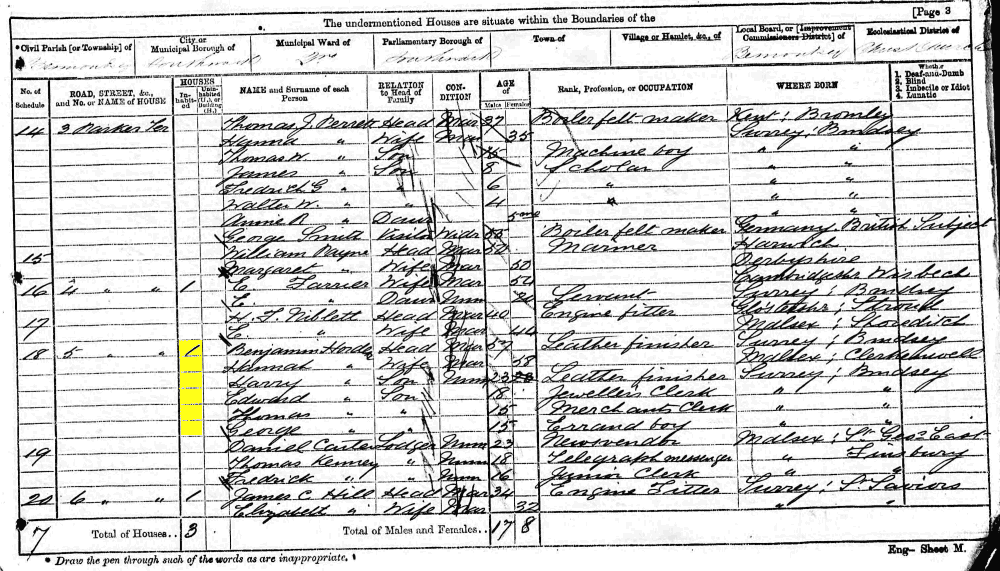 [Page 3
The undermentioned Houses are situate within the Boundaries of the
*Civil Parish [or Township] of City or Municipal Borough of Municipal Ward of Parliamentary Borough of Town of Village or Hamlet, &c., of Local Board, or [Improvement Commissioners District] of Ecclesiastical District of
Southwark Southwark Bermondsey Christ Church
No. of Schedule ROAD, STREET, &c., and No. or NAME of HOUSE HOUSES Inhabited Uninhabited (U.), or Building (B.) NAME and Surname of each Person RELATION to Head of Family CONDITION AGE of Males Females Rank, Profession, or OCCUPATION WHERE BORN Whether 1. Deaf-and-Dumb 2. Blind 3. Imbecile or Idiot 4. Lunatic
14 3 Parker Ter Thomas J. Perrett Head Mar 37 Boiler felt maker Kent; Bromley
Hanna " Wife Mar 35 Surrey; Bmdsey
Thomas W. " Son Machine boy " "
James " Son 8 Scholar " "
Fredrich G " " 6 " " "
Walter W. " " 4 " " "
Annie R " Daur 5mo " "
George Smith Visitor Widr Boiler felt maker Germany, British Subject
15 William Payne Head Mar 50 Mariner Harwich
Margaret " Wife Mar 50 Derbyshire
16 4 " " 1 E. Farrier Wife Mar 54 Cambridgeshr Wisbech
E. " Daur Unm Servant Surrey; Bmdsey
17 H. F. Niblett Head Mar 40 Engine fitter Stroud
E " Wife Mar 44 Mdlsex; Shoreditch
18 5 " " 1 Benjamin Head Mar 57 Leather finisher Surrey; Bmdsey
Hannah " Wife Mar 58 Mdlsex; Clerkenwell
Harry " Son Unm 23 Leather finisher Surrey; Bmdsey
Edward " Son 18 Jewellers Clerk " "
Thomas " " 15 Merchants Clerk " "
George " " 15 Errand boy " "
19 Daniel Carter Lodger Unm 23 Newsvendor Mdlsex; St Geo East
Thomas Kenney " Unm 18 Telegraph messenger " Finsbury
Fredrick " " Unm 16 Junior Clerk " "
20 6 " " 1 James C. Hill Head Mar 34 Engine Fitter Surrey; St Saviors
Elizabeth " Wife Mar 32 " "
7 Total of Houses.. 3 Total of Males and Females.. 17 8
* Draw the pen through such of the words as are inappropriate.
Eng—Sheet M.